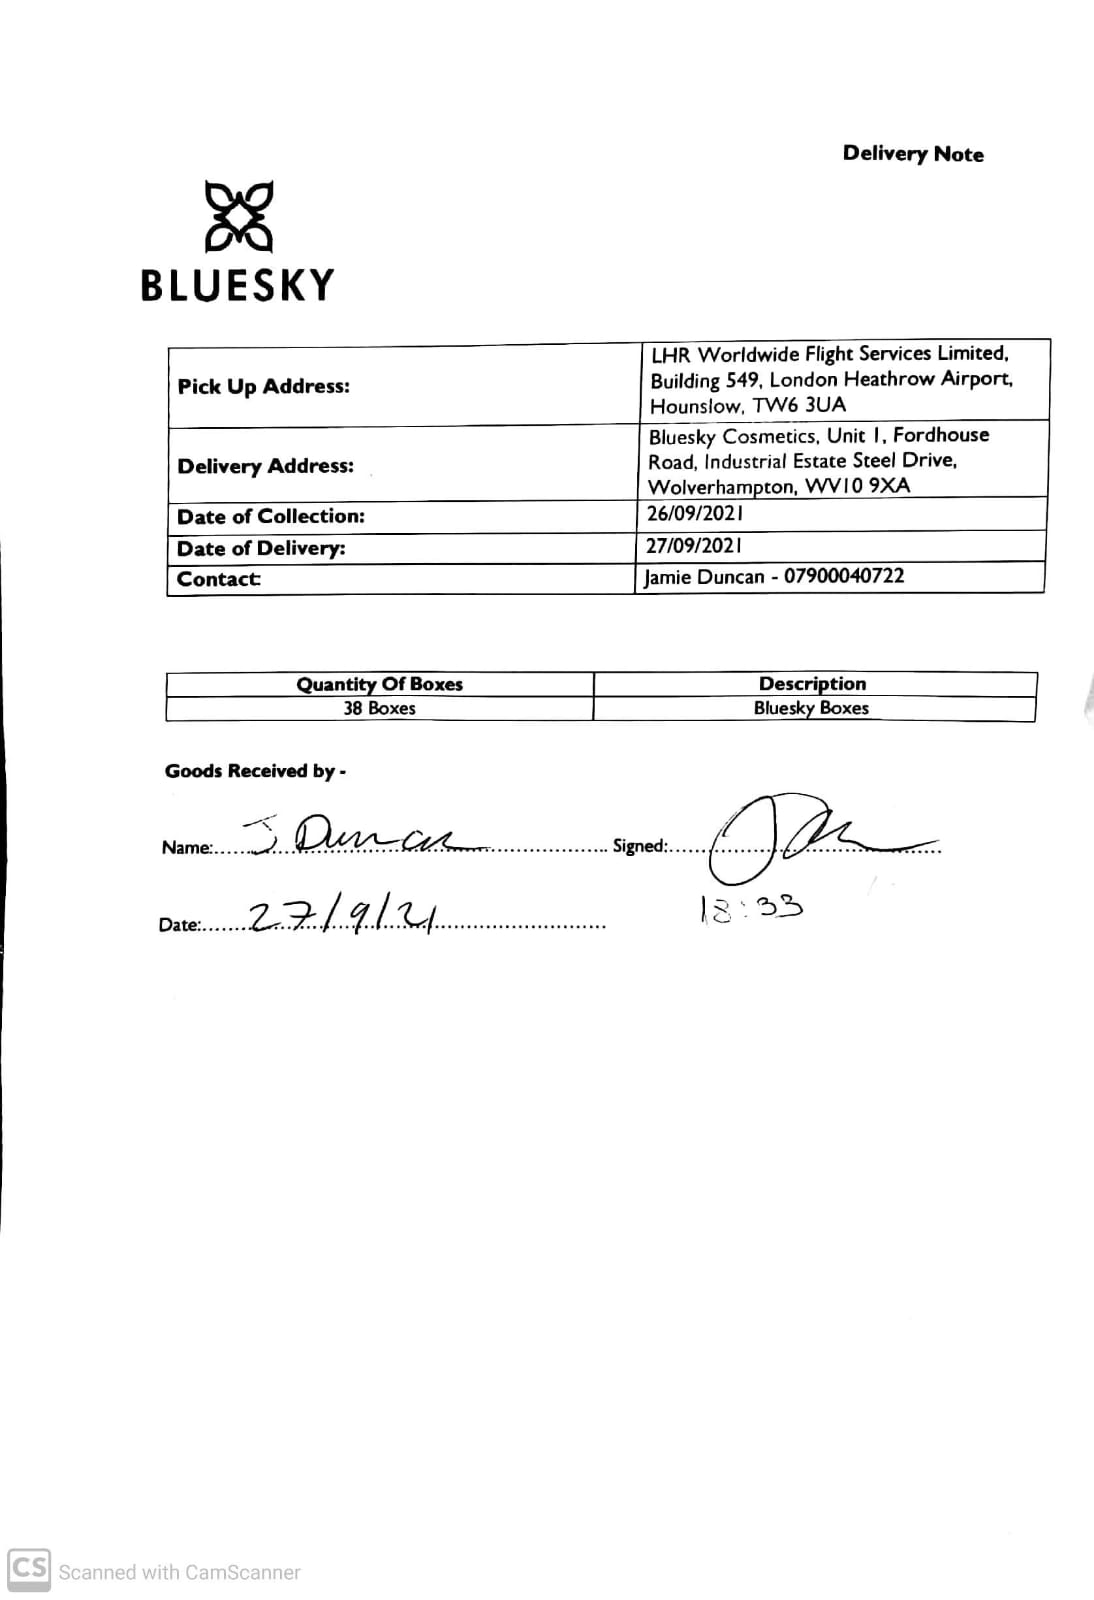 Delivery Note
BLUESKY
Pick Up Address:
LHR Worldwide Flight Services Limited,
Building 549, London Heathrow Airport,
Hounslow, TW6 3UA
Delivery Address:
Bluesky Cosmetics, Unit 1, Fordhouse
Road, Industrial Estate Steel Drive,
Wolverhampton, WV10 9XA
Date of Collection: 26/09/2021
Date of Delivery: 27/09/2021
Contact: Jamie Duncan - 07900040722
Quantity Of Boxes Description
38 Boxes Bluesky Boxes
Goods Received by -
Name: J Duncan Signed:
Date: 27/9/21 18:33
CS Scanned with CamScanner